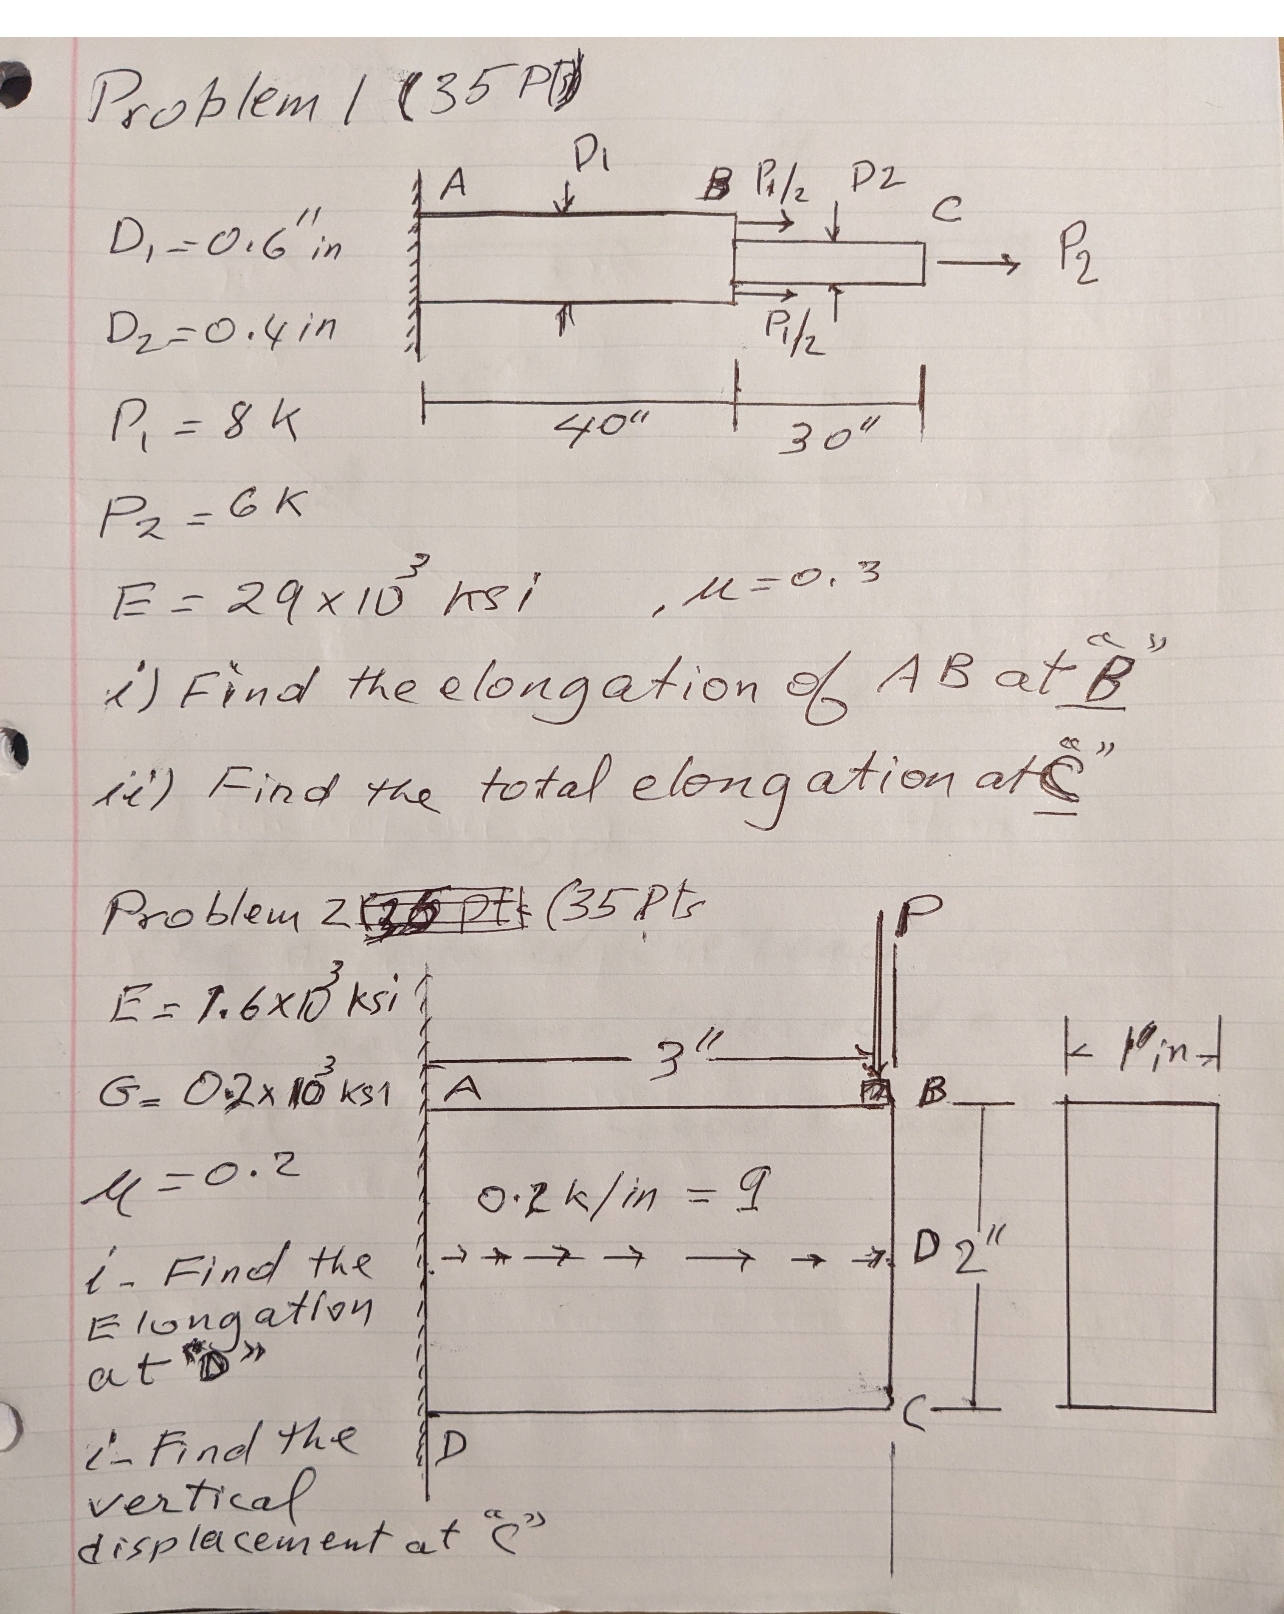 Problem 1 (35 Pts)
D1
A
B P1/2 D2
C
D1 = 0.6" in
P2
D2 = 0.4 in
P1/2
P1 = 8 K
40"
30"
P2 = 6 K
E = 29 x 10^3 ksi , μ = 0.3
i) Find the elongation of AB at "B"
ii) Find the total elongation at "C"
Problem 2 (35 Pts
P
E = 1.6 x 10^3 ksi
3"
1" in
G = 0.2 x 10^3 ksi
A
B
μ = 0.2
0.2 k/in = q
D 2"
i - Find the
Elongation
at "D"
C
D
i - Find the
vertical
displacement at "C"